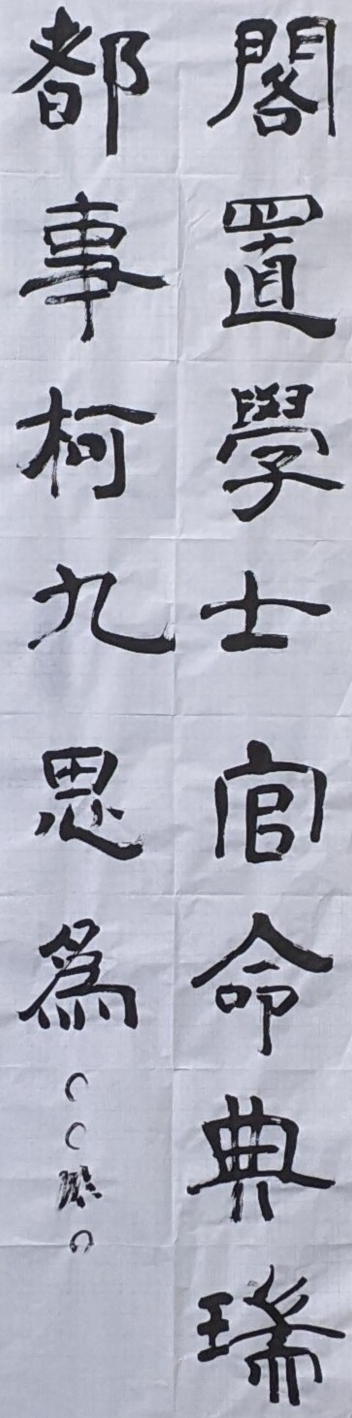 閣置學士官命典瑞
都事柯九思爲